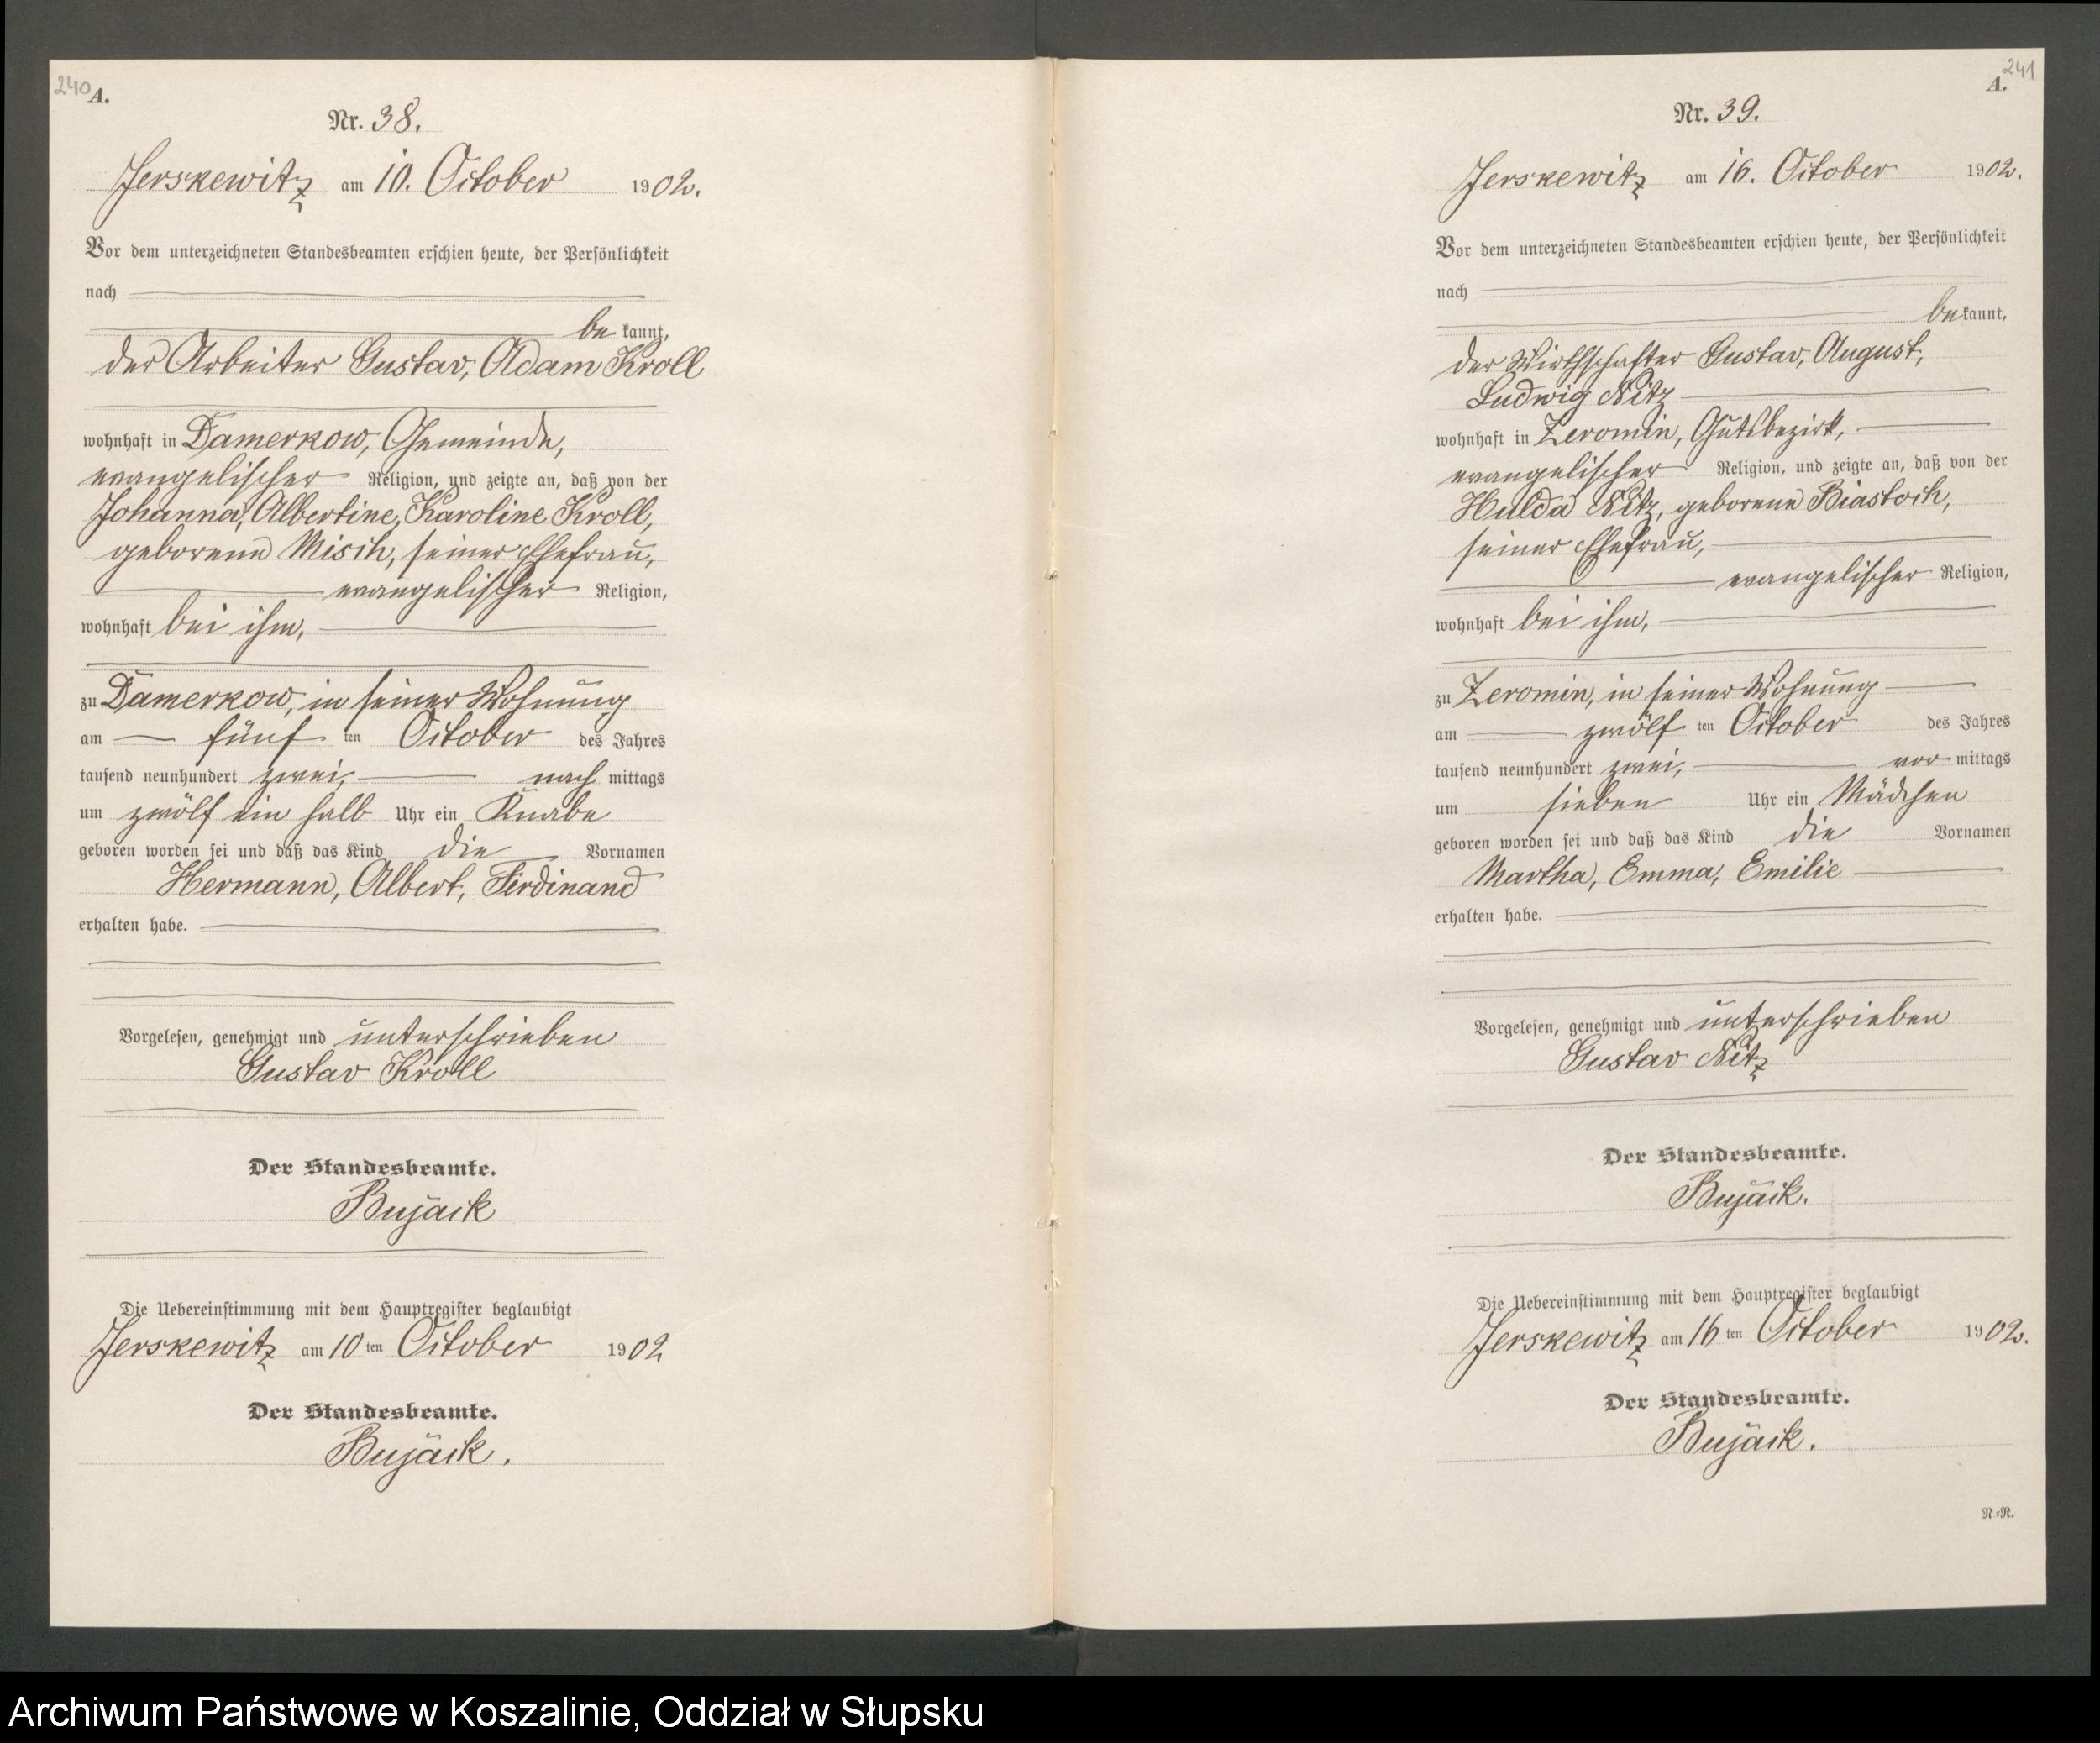 240 A.
Nr. 38.
Jerskewitz am 10. October 1902.
Vor dem unterzeichneten Standesbeamten erschien heute, der Persönlichkeit
nach
be kannt,
der Arbeiter Gustav, Adam Kroll
wohnhaft in Damerkow, Gemeinde,
evangelischer Religion, und zeigte an, daß von der
Johanna, Albertine, Karoline Kroll,
geborene Misch, seiner Ehefrau,
evangelischer Religion,
wohnhaft bei ihm,
zu Damerkow, in seiner Wohnung
am fünf ten October des Jahres
tausend neunhundert zwei, nach mittags
um zwölf ein halb Uhr ein Knabe
geboren worden sei und daß das Kind die Vornamen
Hermann, Albert, Ferdinand
erhalten habe.
Vorgelesen, genehmigt und unterschrieben
Gustav Kroll
Der Standesbeamte.
Bujack
Die Uebereinstimmung mit dem Hauptregister beglaubigt
Jerskewitz am 10 ten October 1902
Der Standesbeamte.
Bujack.
241
A.
Nr. 39.
Jerskewitz am 16. October 1902.
Vor dem unterzeichneten Standesbeamten erschien heute, der Persönlichkeit
nach
bekannt,
der Wirthschafter Gustav, August,
Ludwig Nitz
wohnhaft in Zeromin, Gutsbezirk,
evangelischer Religion, und zeigte an, daß von der
Hulda Nitz, geborene Biastoch,
seiner Ehefrau,
evangelischer Religion,
wohnhaft bei ihm,
zu Zeromin, in seiner Wohnung
am zwölf ten October des Jahres
tausend neunhundert zwei, vor mittags
um sieben Uhr ein Mädchen
geboren worden sei und daß das Kind die Vornamen
Martha, Emma, Emilie
erhalten habe.
Vorgelesen, genehmigt und unterschrieben
Gustav Nitz
Der Standesbeamte.
Bujack.
Die Uebereinstimmung mit dem Hauptregister beglaubigt
Jerskewitz am 16 ten October 1902.
Der Standesbeamte.
Bujack.
N=R.
Archiwum Państwowe w Koszalinie, Oddział w Słupsku